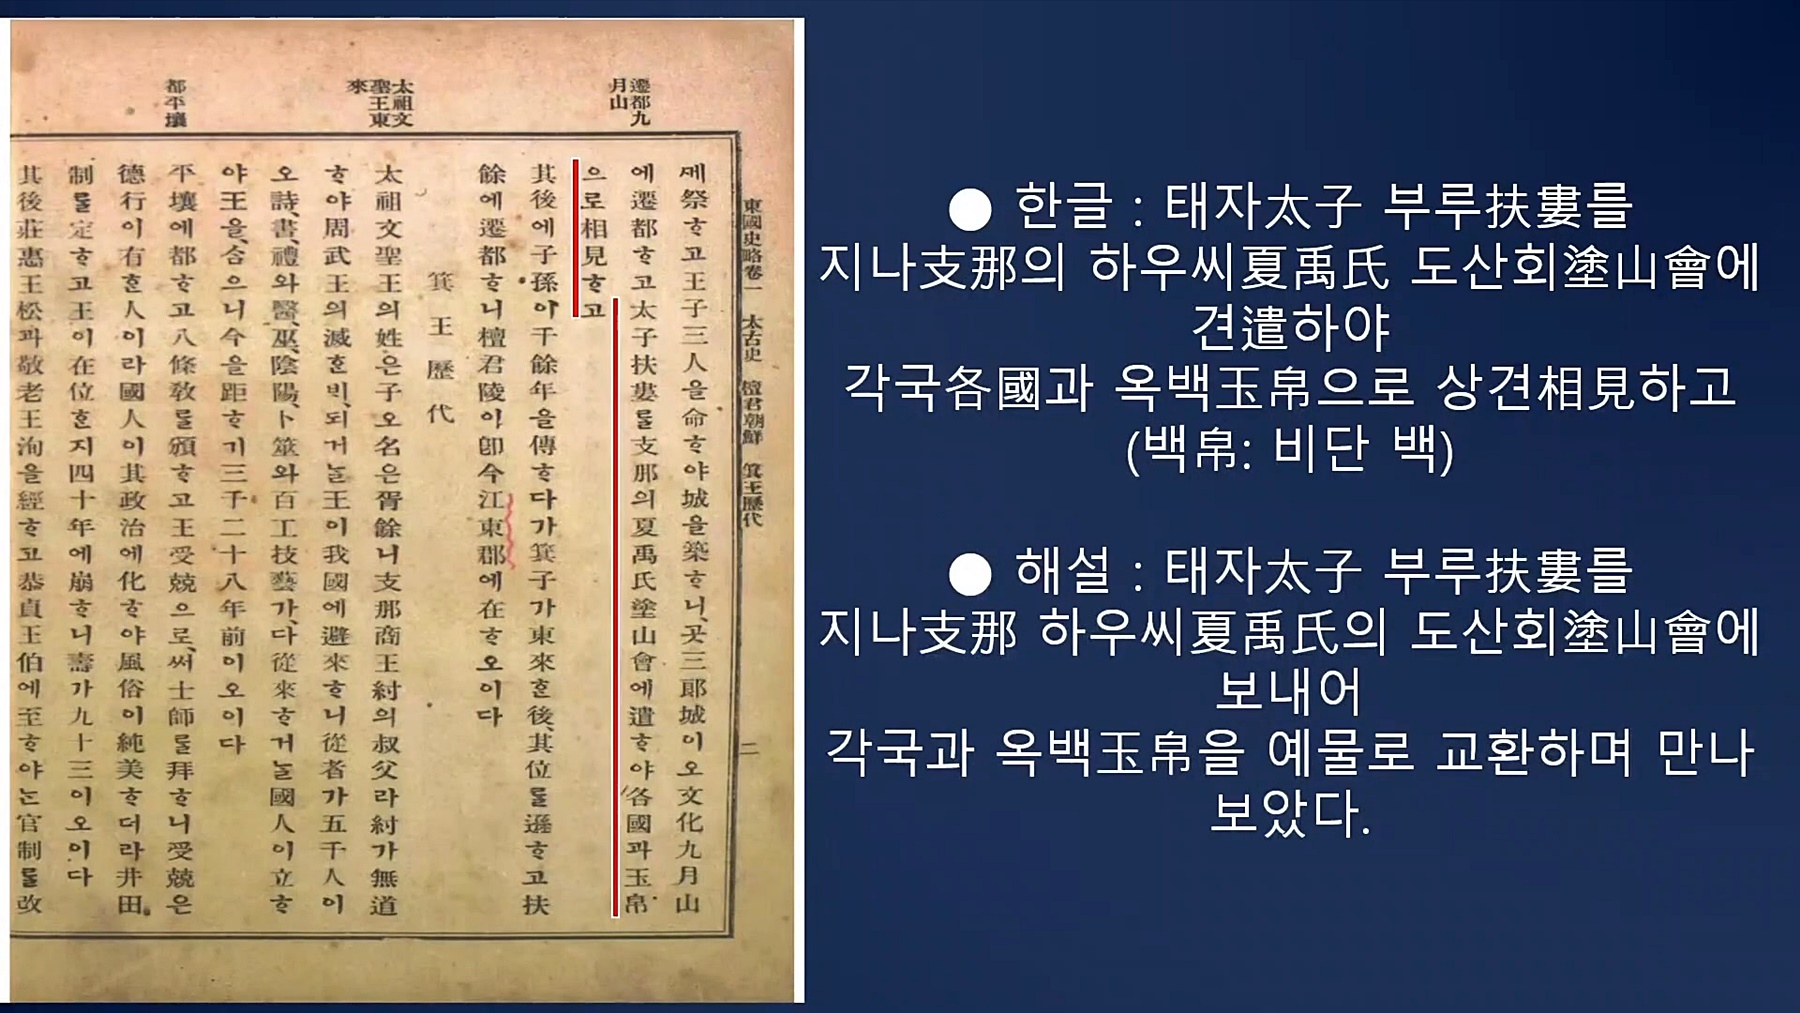 遷都九
月山
太祖文
聖王東
來
都平壤
東國史略卷一 太古史 檀君朝鮮 箕王歷代
二
졔祭ᄒᆞ고王子三人을命ᄒᆞ야城을築ᄒᆞ니,곳三郞城이오文化九月山
에遷都ᄒᆞ고太子扶婁를支那의夏禹氏塗山會에遣ᄒᆞ야各國과玉帛
으로相見ᄒᆞ고
其後에子孫이千餘年을傳ᄒᆞ다가箕子가東來ᄒᆞᆫ後,其位를遜ᄒᆞ고扶
餘에遷都ᄒᆞ니檀君陵이卽今江東郡에在ᄒᆞ오이다
箕王歷代
太祖文聖王의姓은子오名은胥餘니支那商王紂의叔父라紂가無道
ᄒᆞ야周武王의滅ᄒᆞᆫᄇᆡ,되거ᄂᆞᆯ王이我國에避來ᄒᆞ니從者가五千人이
오詩,書,禮와醫,巫,陰陽,卜筮와百工技藝가,다從來ᄒᆞ거ᄂᆞᆯ國人이立ᄒᆞ
야王을合으니今을距ᄒᆞ기三千二十八年前이오이다
平壤에都ᄒᆞ고八條敎를頒ᄒᆞ고王受兢으로,써士師를拜ᄒᆞ니受兢은
德行이有ᄒᆞᆫ人이라國人이其政治에化ᄒᆞ야風俗이純美ᄒᆞ더라井田
制를定ᄒᆞ고王이在位ᄒᆞᆫ지四十年에崩ᄒᆞ니壽가九十三이오이다
其後莊惠王松과敬老王洵을經ᄒᆞ고恭貞王伯에至ᄒᆞ야ᄂᆞᆫ官制를改
● 한글 : 태자太子 부루扶婁를
지나支那의 하우씨夏禹氏 도산회塗山會에
견遣하야
각국各國과 옥백玉帛으로 상견相見하고
(백帛: 비단 백)
● 해설 : 태자太子 부루扶婁를
지나支那 하우씨夏禹氏의 도산회塗山會에
보내어
각국과 옥백玉帛을 예물로 교환하며 만나
보았다.